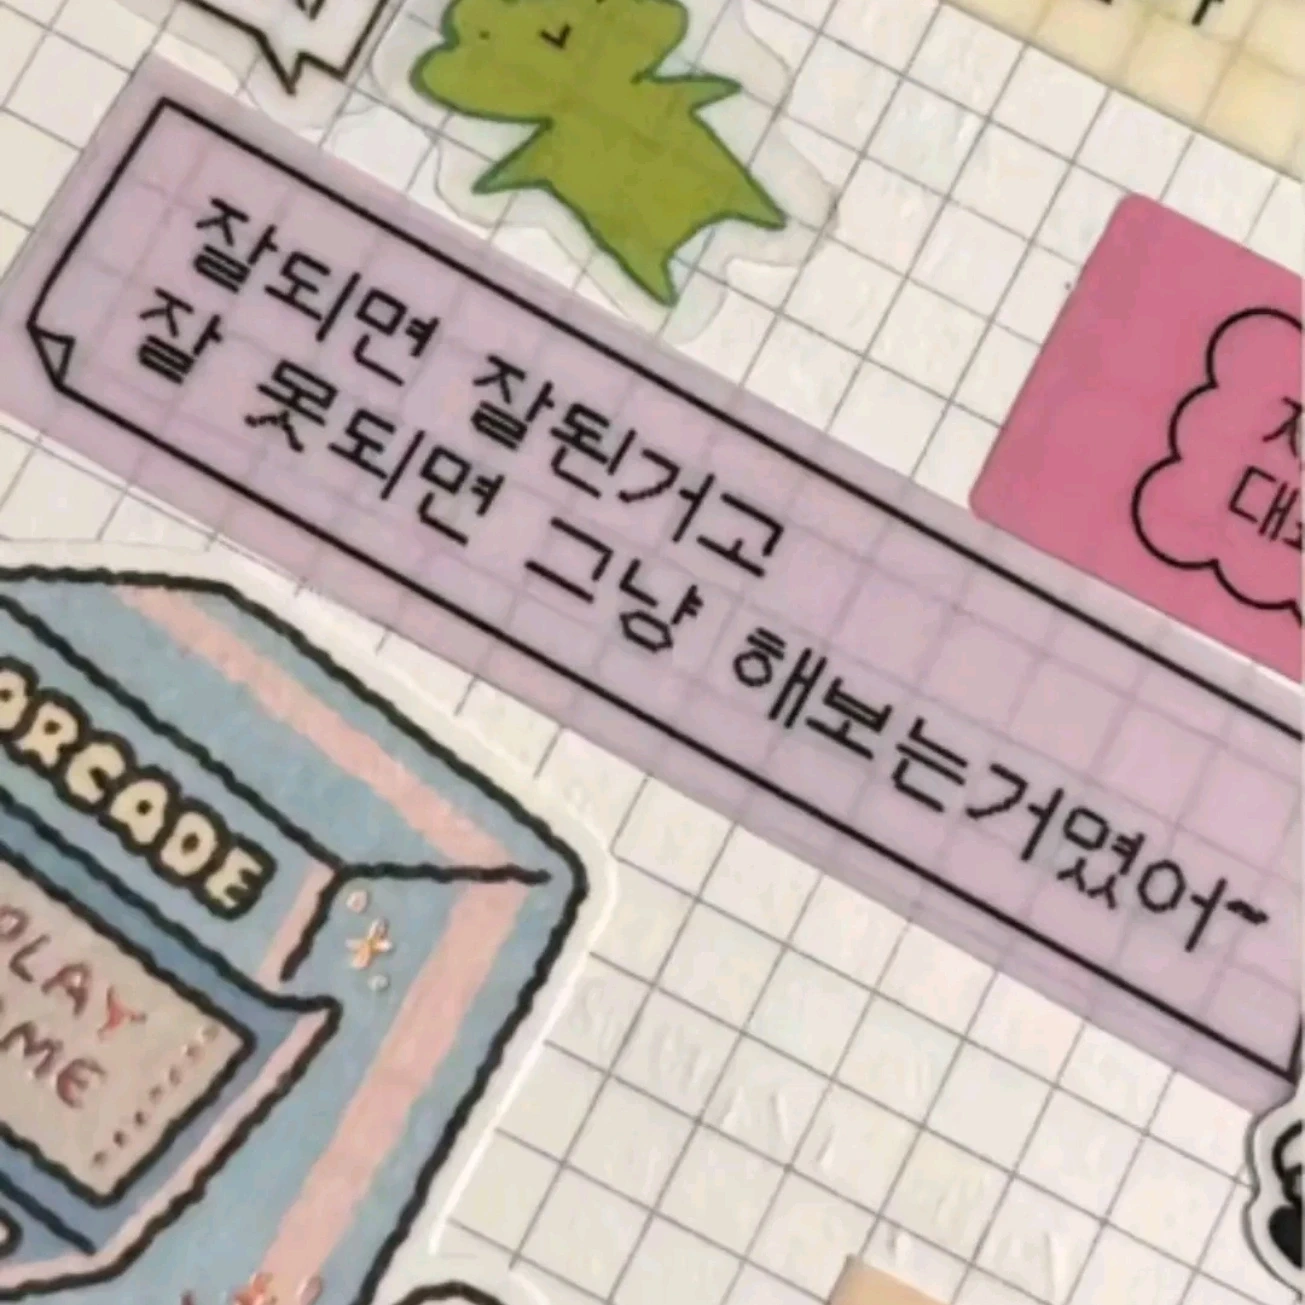 잘되면 잘된거고
잘 못되면 그냥 해보는거였어~
ARCADE
PLAY